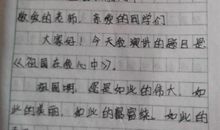 敬爱的老师，亲爱的同学们
大家好！今天我演讲的题目是
《祖国在我心中》。
祖国啊，您是如此的伟大，如
此的美丽，如此的富饶，如此的